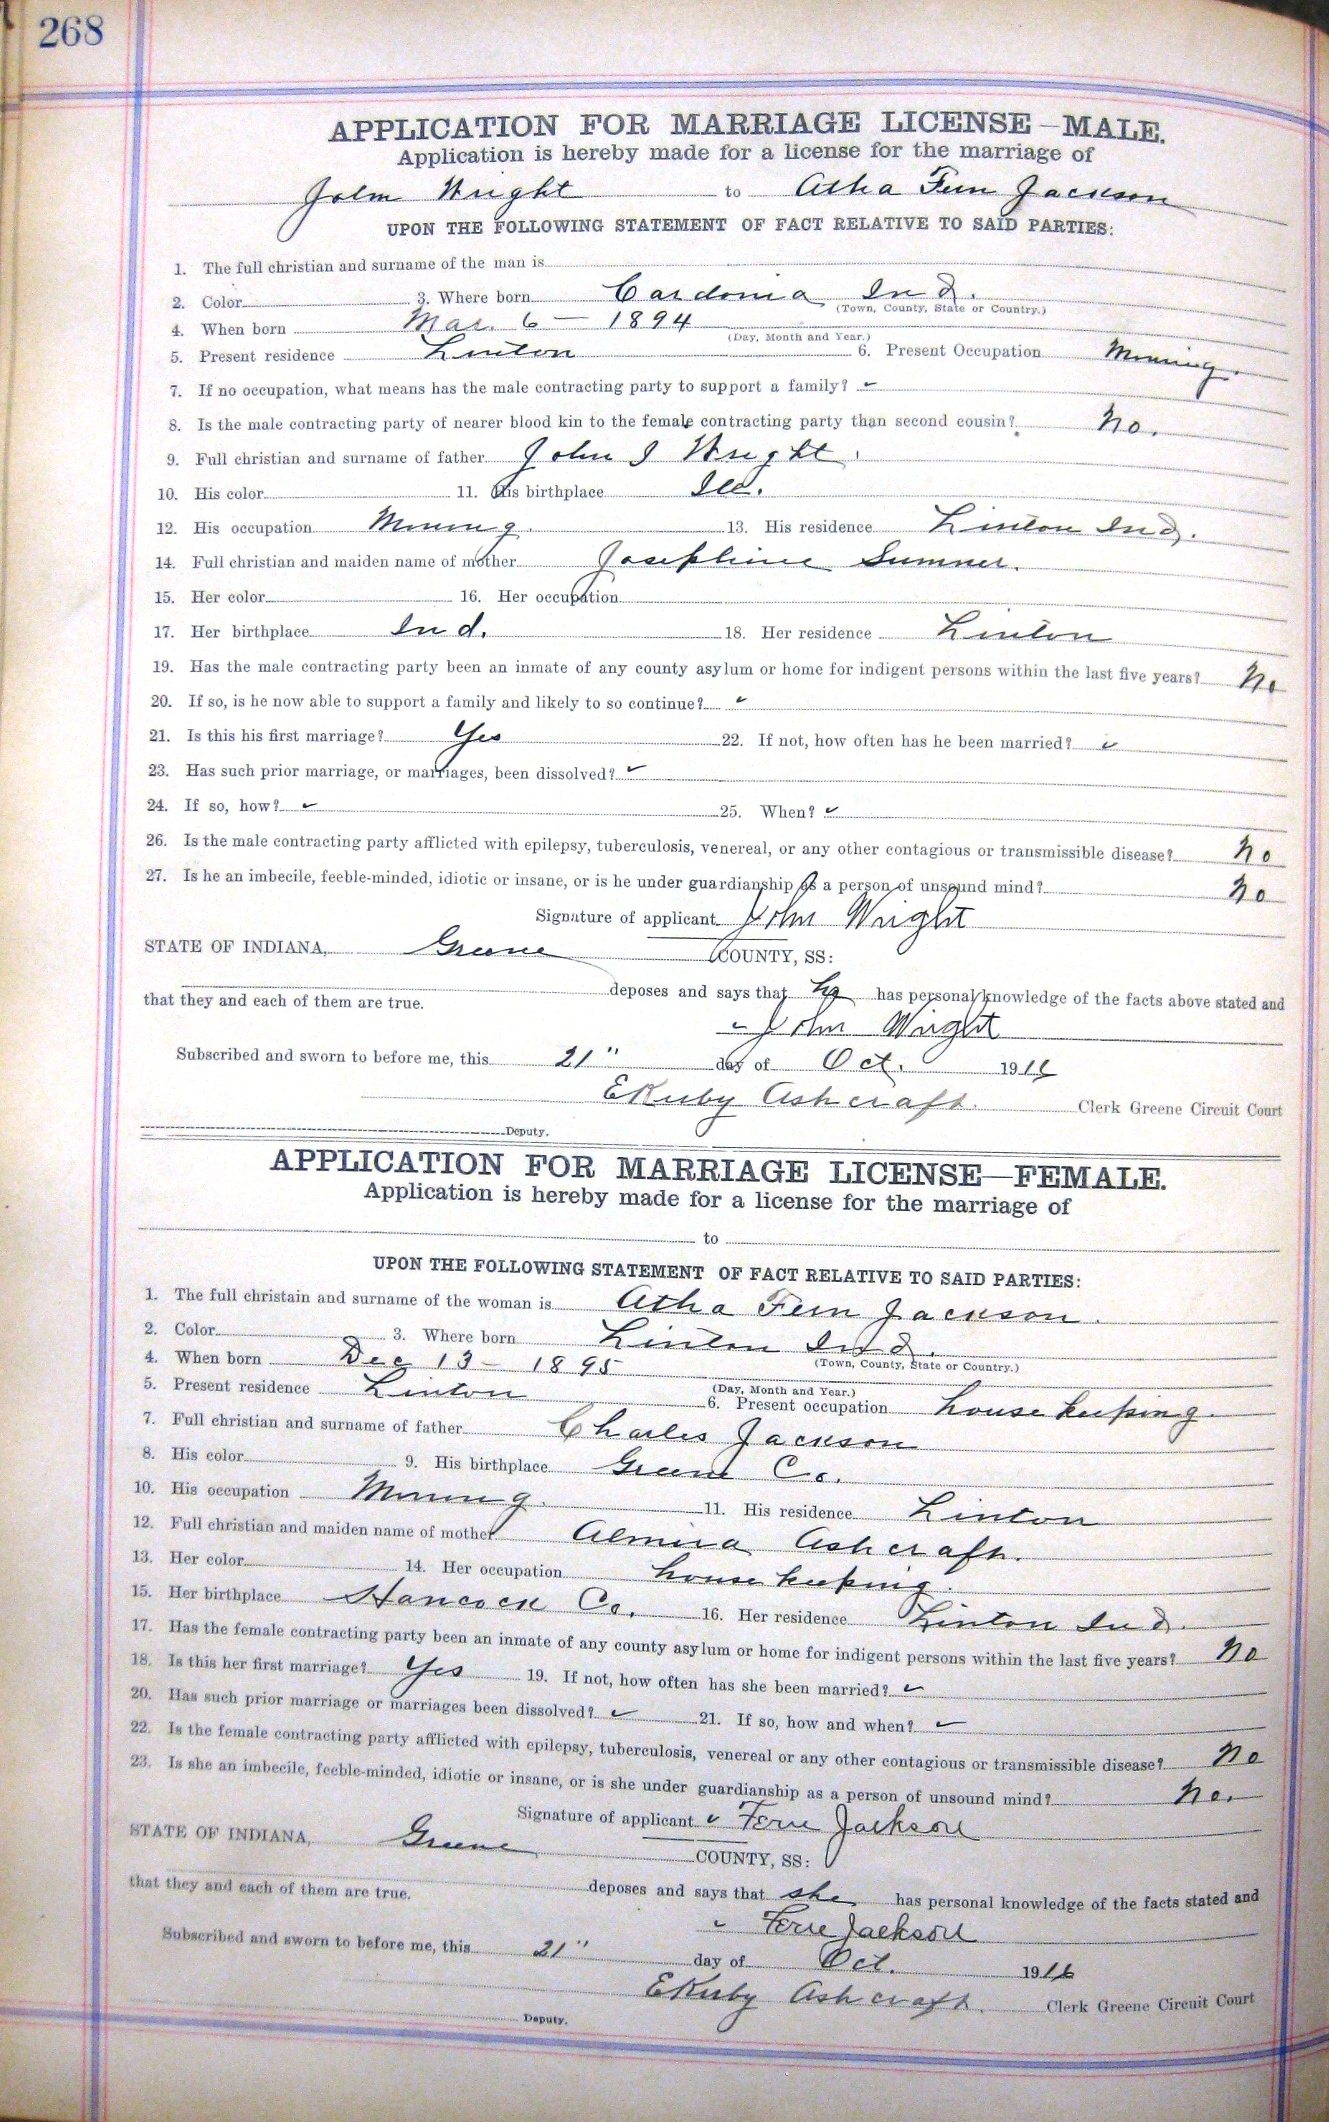 268
APPLICATION FOR MARRIAGE LICENSE—MALE.
Application is hereby made for a license for the marriage of
John Wright to Atha Fern Jackson
UPON THE FOLLOWING STATEMENT OF FACT RELATIVE TO SAID PARTIES:
1. The full christian and surname of the man is
2. Color 3. Where born Cardonia Ind.
(Town, County, State or Country.)
4. When born Mar. 6 — 1894
(Day, Month and Year.)
5. Present residence Linton 6. Present Occupation Mining.
7. If no occupation, what means has the male contracting party to support a family? ✓
8. Is the male contracting party of nearer blood kin to the female contracting party than second cousin? No.
9. Full christian and surname of father John I Wright.
10. His color 11. His birthplace Ill.
12. His occupation Mining. 13. His residence Linton Ind.
14. Full christian and maiden name of mother Josephine Sumner.
15. Her color 16. Her occupation
17. Her birthplace Ind. 18. Her residence Linton
19. Has the male contracting party been an inmate of any county asylum or home for indigent persons within the last five years? No
20. If so, is he now able to support a family and likely to so continue? ✓
21. Is this his first marriage? Yes 22. If not, how often has he been married? ✓
23. Has such prior marriage, or marriages, been dissolved? ✓
24. If so, how? ✓ 25. When? ✓
26. Is the male contracting party afflicted with epilepsy, tuberculosis, venereal, or any other contagious or transmissible disease? No
27. Is he an imbecile, feeble-minded, idiotic or insane, or is he under guardianship as a person of unsound mind? No
Signature of applicant John Wright
STATE OF INDIANA, Greene COUNTY, SS:
deposes and says that he has personal knowledge of the facts above stated and
that they and each of them are true.
✓ John Wright
Subscribed and sworn to before me, this 21" day of Oct. 1916
E Kirby Ashcraft. Clerk Greene Circuit Court
Deputy.
APPLICATION FOR MARRIAGE LICENSE—FEMALE.
Application is hereby made for a license for the marriage of
to
UPON THE FOLLOWING STATEMENT OF FACT RELATIVE TO SAID PARTIES:
1. The full christain and surname of the woman is Atha Fern Jackson.
2. Color 3. Where born Linton Ind.
(Town, County, State or Country.)
4. When born Dec 13 – 1895
(Day, Month and Year.)
5. Present residence Linton 6. Present occupation housekeeping.
7. Full christian and surname of father Charles Jackson
8. His color 9. His birthplace Greene Co.
10. His occupation Mining. 11. His residence Linton
12. Full christian and maiden name of mother Almira Ashcraft.
13. Her color 14. Her occupation housekeeping.
15. Her birthplace Hancock Co. 16. Her residence Linton Ind.
17. Has the female contracting party been an inmate of any county asylum or home for indigent persons within the last five years? No
18. Is this her first marriage? Yes 19. If not, how often has she been married? ✓
20. Has such prior marriage or marriages been dissolved? ✓ 21. If so, how and when? ✓
22. Is the female contracting party afflicted with epilepsy, tuberculosis, venereal or any other contagious or transmissible disease? No
23. Is she an imbecile, feeble-minded, idiotic or insane, or is she under guardianship as a person of unsound mind? No.
Signature of applicant ✓ Fern Jackson
STATE OF INDIANA, Greene COUNTY, SS:
deposes and says that she has personal knowledge of the facts stated and
that they and each of them are true.
✓ Fern Jackson
Subscribed and sworn to before me, this 21" day of Oct. 1916
E Kirby Ashcraft. Clerk Greene Circuit Court
Deputy.